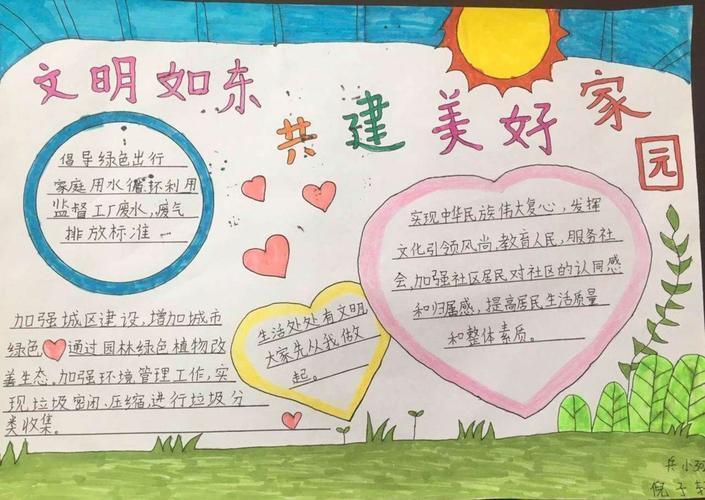 文明如东
共建美好家园
倡导绿色出行
家庭用水循环利用
监督工厂废水,废气
排放标准
实现中华民族伟大复心,发挥
文化引领风尚,教育人民,服务社
会,加强社区居民对社区的认同感
和归属感,提高居民生活质量
和整体素质。
生活处处有文明
大家先从我做
起。
加强城区建设,增加城市
绿色 通过园林绿色植物改
善生态。加强环境管理工作,实
现垃圾密闭、压缩,进行垃圾分
类收集。
兵小
倪子